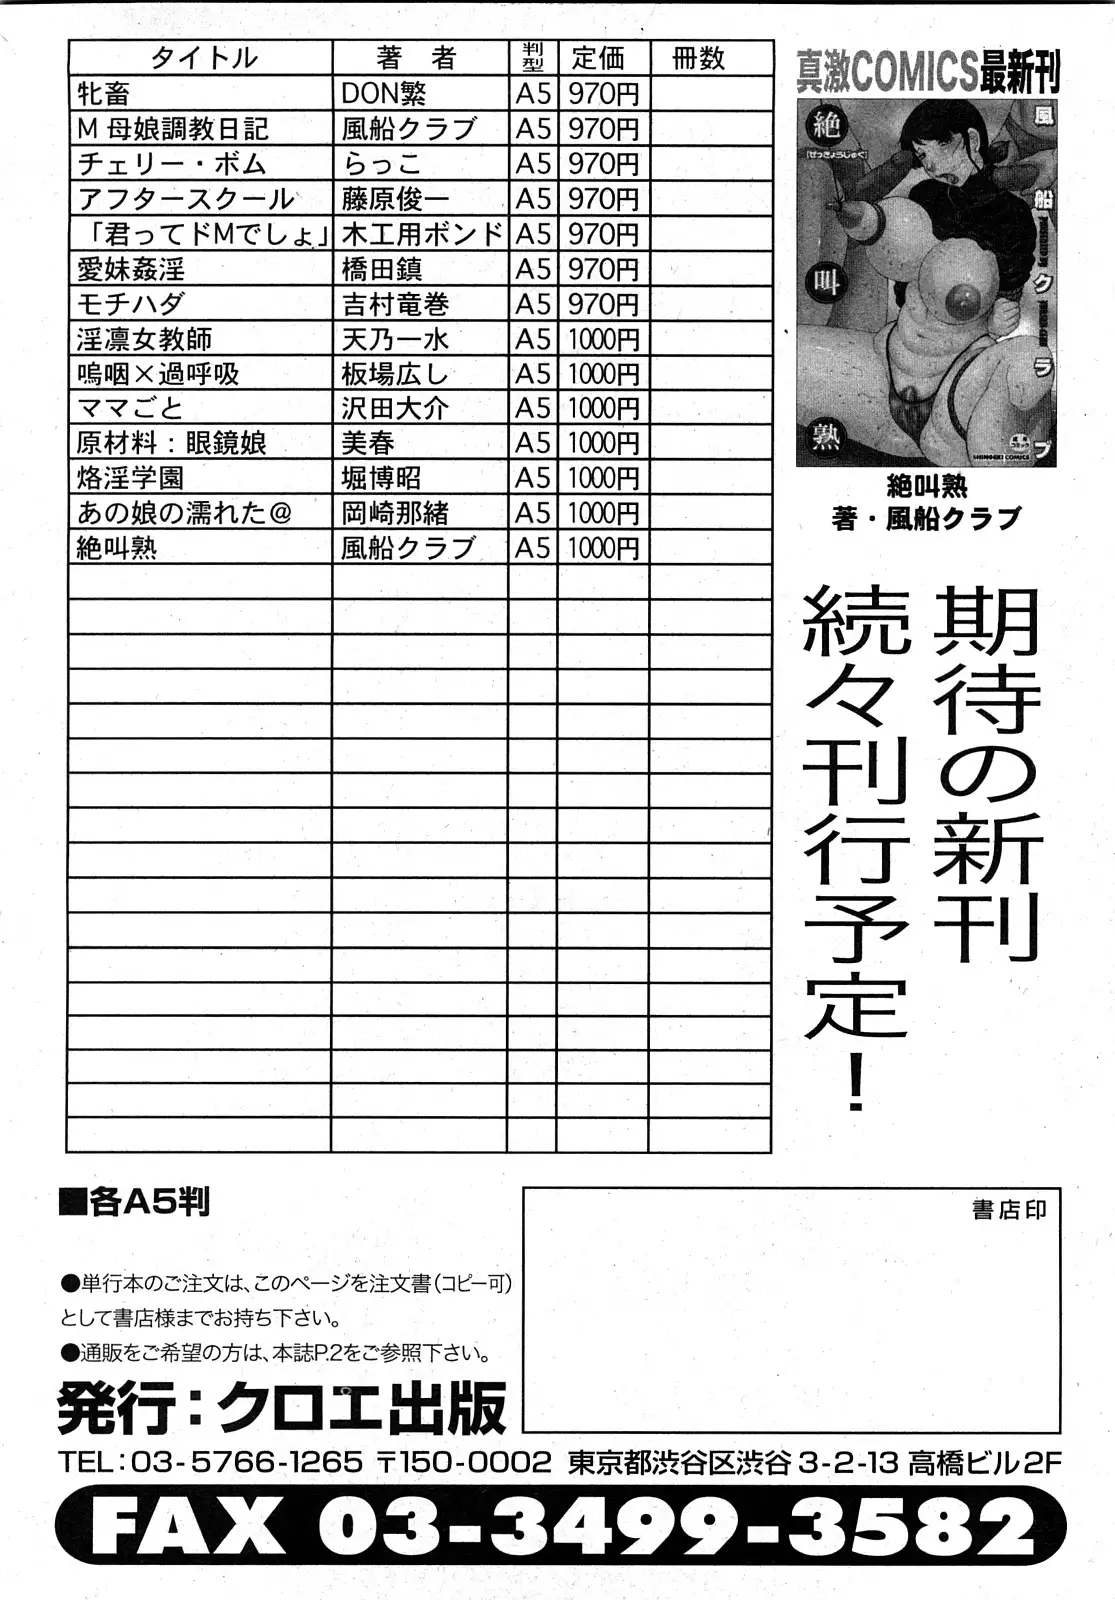 タイトル 著者 判型 定価 冊数
牝畜 DON繁 A5 970円
M母娘調教日記 風船クラブ A5 970円
チェリー・ボム らっこ A5 970円
アフタースクール 藤原俊一 A5 970円
「君ってドMでしょ」 木工用ボンド A5 970円
愛妹姦淫 橋田鎮 A5 970円
モチハダ 吉村竜巻 A5 970円
淫凛女教師 天乃一水 A5 1000円
嗚咽×過呼吸 板場広し A5 1000円
ママごと 沢田大介 A5 1000円
原材料：眼鏡娘 美春 A5 1000円
烙淫学園 堀博昭 A5 1000円
あの娘の濡れた＠ 岡崎那緒 A5 1000円
絶叫熟 風船クラブ A5 1000円
真激COMICS最新刊
風船クラブ
絶叫熟
[ぜっきょうじゅく]
成年コミック
SHINGEKI COMICS
絶叫熟
著・風船クラブ
期待の新刊
続々刊行予定！
■各A5判
書店印
●単行本のご注文は、このページを注文書（コピー可）
として書店様までお持ち下さい。
●通販をご希望の方は、本誌P.2をご参照下さい。
発行：クロエ出版
TEL：03-5766-1265 〒150-0002 東京都渋谷区渋谷3-2-13 高橋ビル2F
FAX 03-3499-3582